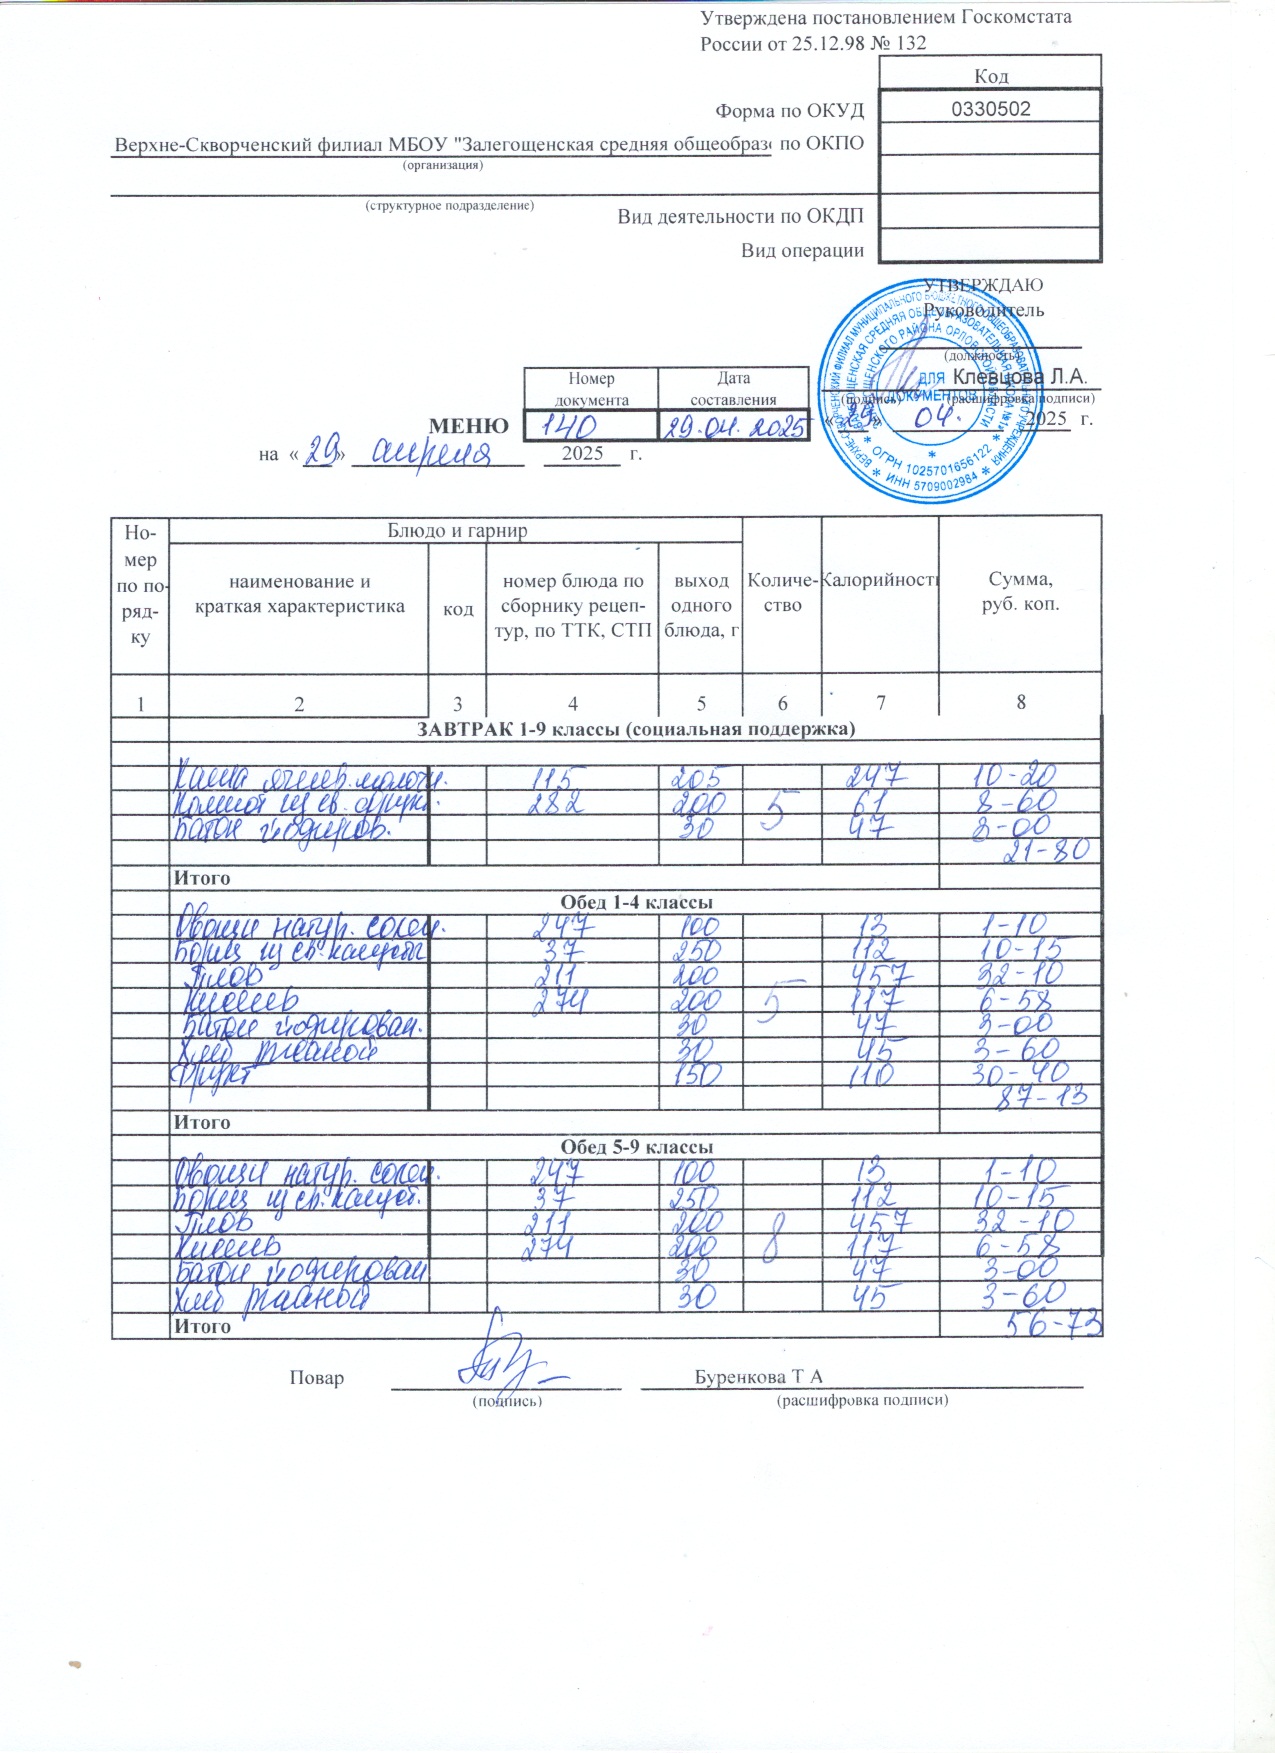 Утверждена постановлением Госкомстата
России от 25.12.98 № 132
Код
Форма по ОКУД 0330502
Верхне-Скворченский филиал МБОУ "Залегощенская средняя общеобраз по ОКПО
(организация)
(структурное подразделение)
Вид деятельности по ОКДП
Вид операции
УТВЕРЖДАЮ
Руководитель
(должность)
ДЛЯ ДОКУМЕНТОВ
ОГРН 1025701656122
ИНН 5709002984
Клевцова Л.А.
(подпись) (расшифровка подписи)
« 29 » 04. 2025 г.
Номер документа Дата составления
МЕНЮ 140 29.04.2025
на « 29 » апреля 2025 г.
Но-мер по по-ряд-ку Блюдо и гарнир Количе-ство Калорийность Сумма, руб. коп.
наименование и краткая характеристика код номер блюда по сборнику рецеп-тур, по ТТК, СТП выход одного блюда, г
1 2 3 4 5 6 7 8
ЗАВТРАК 1-9 классы (социальная поддержка)
Каша ячнев. молочн. 115 205 247 10-20
Компот из св. фрукт. 282 200 5 61 8-60
Батон йодиров. 30 47 3-00
21-80
Итого
Обед 1-4 классы
Овощи натур. солен. 247 100 13 1-10
Борщ из св. капусты 37 250 112 10-15
Плов 211 200 457 32-10
Кисель 274 200 5 117 6-58
Батон йодирован. 30 47 3-00
Хлеб ржаной 30 45 3-60
Фрукт 150 110 30-40
87-13
Итого
Обед 5-9 классы
Овощи натур. солен. 247 100 13 1-10
Борщ из св. капуст. 37 250 112 10-15
Плов 211 200 457 32-10
Кисель 274 200 8 117 6-58
Батон йодирован 30 47 3-00
Хлеб ржаной 30 45 3-60
Итого 56-73
Повар Буренкова Т А
(подпись) (расшифровка подписи)